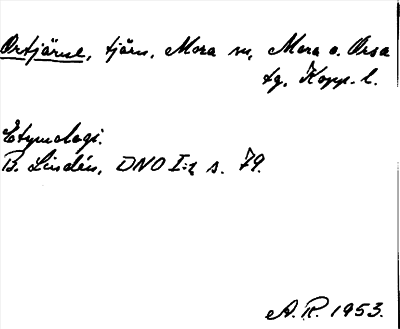 Ortjärne, tjärn, Mora sn, Mora o. Orsa
tg, Kopp. l.
Etymologi.
B. Lindén, DNO I:1 s. 79.
A. R. 1953.